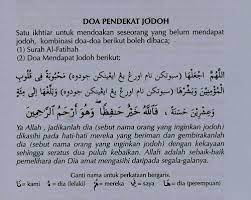 DOA PENDEKAT JODOH
Satu ikhtiar untuk mendoakan seseorang yang belum mendapat
jodoh, kombinasi doa-doa berikut boleh dibaca;
(1) Surah Al-Fatihah
(2) Doa Mendapat Jodoh berikut;
اللَّهُمَّ اجْعَلْهَا (سبوتكن نام اورڠ يڠ ايڠينكن جودوه) مَحْبُوْبَةً فِي قُلُوْبِ
(سبوتكن نام اورڠ يڠ ايڠينكن جودوه)
وَعِشْرِيْنَ حَسَنَةً، فَاللَّهُ خَيْرٌ حَفِظًا وَهُوَ أَرْحَمُ الرَّاحِمِيْنَ
Ya Allah, Jadikanlah dia (sebut nama orang yang inginkan jodoh)
dikasihi pada hati orang-orang mukmin dan sampaikanlah
dia (sebut nama orang yang inginkan jodoh) dengan kekayaan
sehingga seratus dua puluh kebaikan. Allah adalah sebaik-baik
pemelihara dan Dia amat mengasihi daripada segala-galanya.
Ganti nama untuk perkataan bergaris.
نا = kami ه = dia (lelaki) ي = saya ها = dia (perempuan)